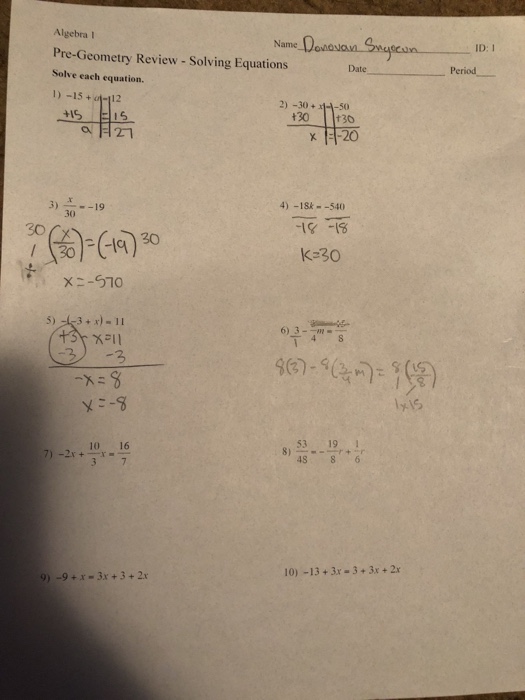 Algebra 1
Name Donovan
ID: 1
Pre-Geometry Review - Solving Equations
Date
Period
Solve each equation.
1) -15 + a = 12
+15 = 15
a = 27
2) -30 + x = -50
+30 +30
x = -20
3) x/30 = -19
30/1 (x/30) = (-19) 30
x = -570
4) -18k = -540
-18 -18
K=30
5) -(-3 + x) = 11
+3 - x = 11
-3 -3
-x = 8
x = -8
6) 3/1 - 3/4 m = 15/8
8(3) - 8(3/4 m) = 8/1 (15/8)
1x15
7) -2x + 10/3 x = 16/7
8) 53/48 = -19/8 r + 1/6 r
9) -9 + x = 3x + 3 + 2x
10) -13 + 3x = 3 + 3x + 2x